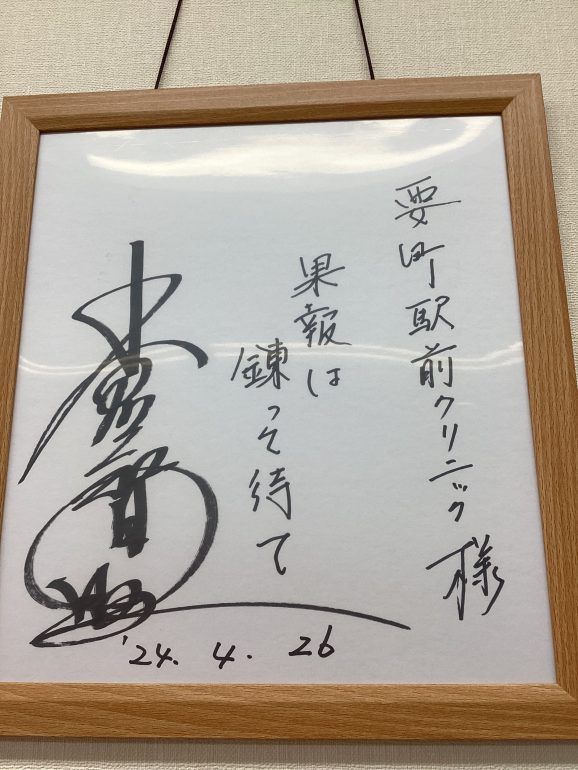 要町駅前クリニック様
果報は
錬って待て
'24. 4. 26